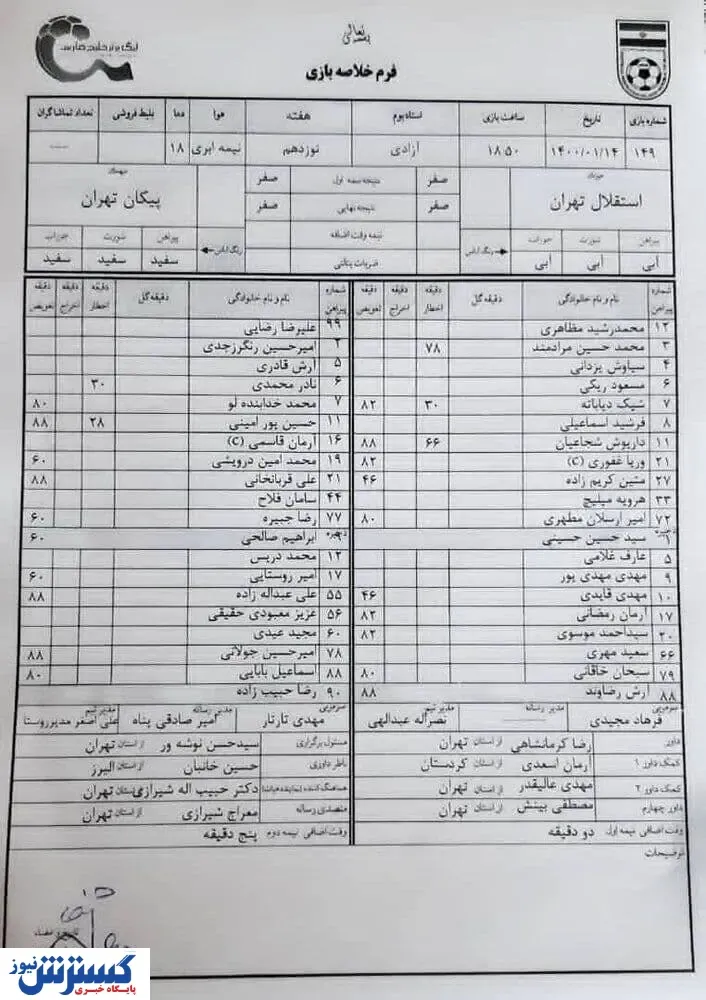 بسمه تعالی
لیگ برتر خلیج فارس
فرم خلاصه بازی
شماره بازی تاریخ ساعت بازی استادیوم هفته هوا دما بلیط فروشی تعداد تماشاگران
۱۴۹ ۱۴۰۰/۰۱/۱۴ ۱۸:۵۰ آزادی نوزدهم نیمه ابری ۱۸
میزبان صفر نتیجه نیمه اول صفر میهمان
استقلال تهران صفر نتیجه نهایی صفر پیکان تهران
پیراهن شورت جوراب رنگ لباس نیمه وقت اضافه رنگ لباس پیراهن شورت جوراب
آبی آبی آبی ضربات پنالتی سفید سفید سفید
شماره پیراهن نام و نام خانوادگی دقیقه گل دقیقه اخطار دقیقه اخراج دقیقه تعویض
۱۲ محمدرشید مظاهری
۳ محمد حسین مرادمند ۷۸
۴ سیاوش یزدانی
۶ مسعود ریگی
۷ شیک دیاباته ۳۰ ۸۲
۸ فرشید اسماعیلی
۱۱ داریوش شجاعیان ۶۶ ۸۸
۲۱ وریا غفوری (C) ۸۲
۲۷ متین کریم زاده ۴۶
۳۳ هرویه میلیچ
۷۲ امیر ارسلان مطهری ۸۰
ذخیره
۱ سید حسین حسینی
۵ عارف غلامی
۹ مهدی مهدی پور
۱۰ مهدی قایدی ۴۶
۱۷ آرمان رمضانی ۸۲
۲۰ سیداحمد موسوی ۸۲
۶۶ سعید مهری
۷۹ سبحان خاقانی ۸۰
۸۸ آرش رضاوند ۸۸
سرمربی مدیر رسانه مدیر تیم
فرهاد مجیدی نصراله عبدالهی
شماره پیراهن نام و نام خانوادگی دقیقه گل دقیقه اخطار دقیقه اخراج دقیقه تعویض
۹۹ علیرضا رضایی
۲ امیرحسین رنگرزجدی
۵ آرش قادری
۶ نادر محمدی ۳۰
۷ محمد خدابنده لو ۸۰
۱۱ حسین پور امینی ۲۸ ۸۸
۱۶ آرمان قاسمی (C)
۱۹ محمد امین درویشی ۶۰
۲۱ علی قربانخانی ۸۸
۴۴ سامان فلاح
۷۷ رضا جبیره ۶۰
ذخیره
۹ ابراهیم صالحی ۶۰
۱۲ محمد دریس
۱۷ امیر روستایی ۶۰
۵۵ علی عبداله زاده ۸۸
۵۶ عزیز معبودی حقیقی
۶۰ مجید عیدی
۷۸ امیرحسین جولانی ۸۸
۸۸ اسماعیل بابایی ۸۰
۹۰ رضا حبیب زاده
سرمربی مدیر رسانه مدیر تیم
مهدی تارتار امیر صادقی پناه علی اصغر مدیرروستا
داور رضا کرمانشاهی از استان تهران
کمک داور ۱ آرمان اسعدی از استان کردستان
کمک داور ۲ مهدی عالیقدر از استان تهران
داور چهارم مصطفی بینش از استان تهران
وقت اضافی نیمه اول دو دقیقه
مسئول برگزاری سیدحسن نوشه ور از استان تهران
ناظر داوری حسین خانبان از استان البرز
هماهنگ کننده (نماینده هیات) دکتر حبیب اله شیرازی از استان تهران
متصدی رسانه معراج شیرازی از استان تهران
وقت اضافی نیمه دوم پنج دقیقه
توضیحات
گسترش نیوز
پایگاه خبری